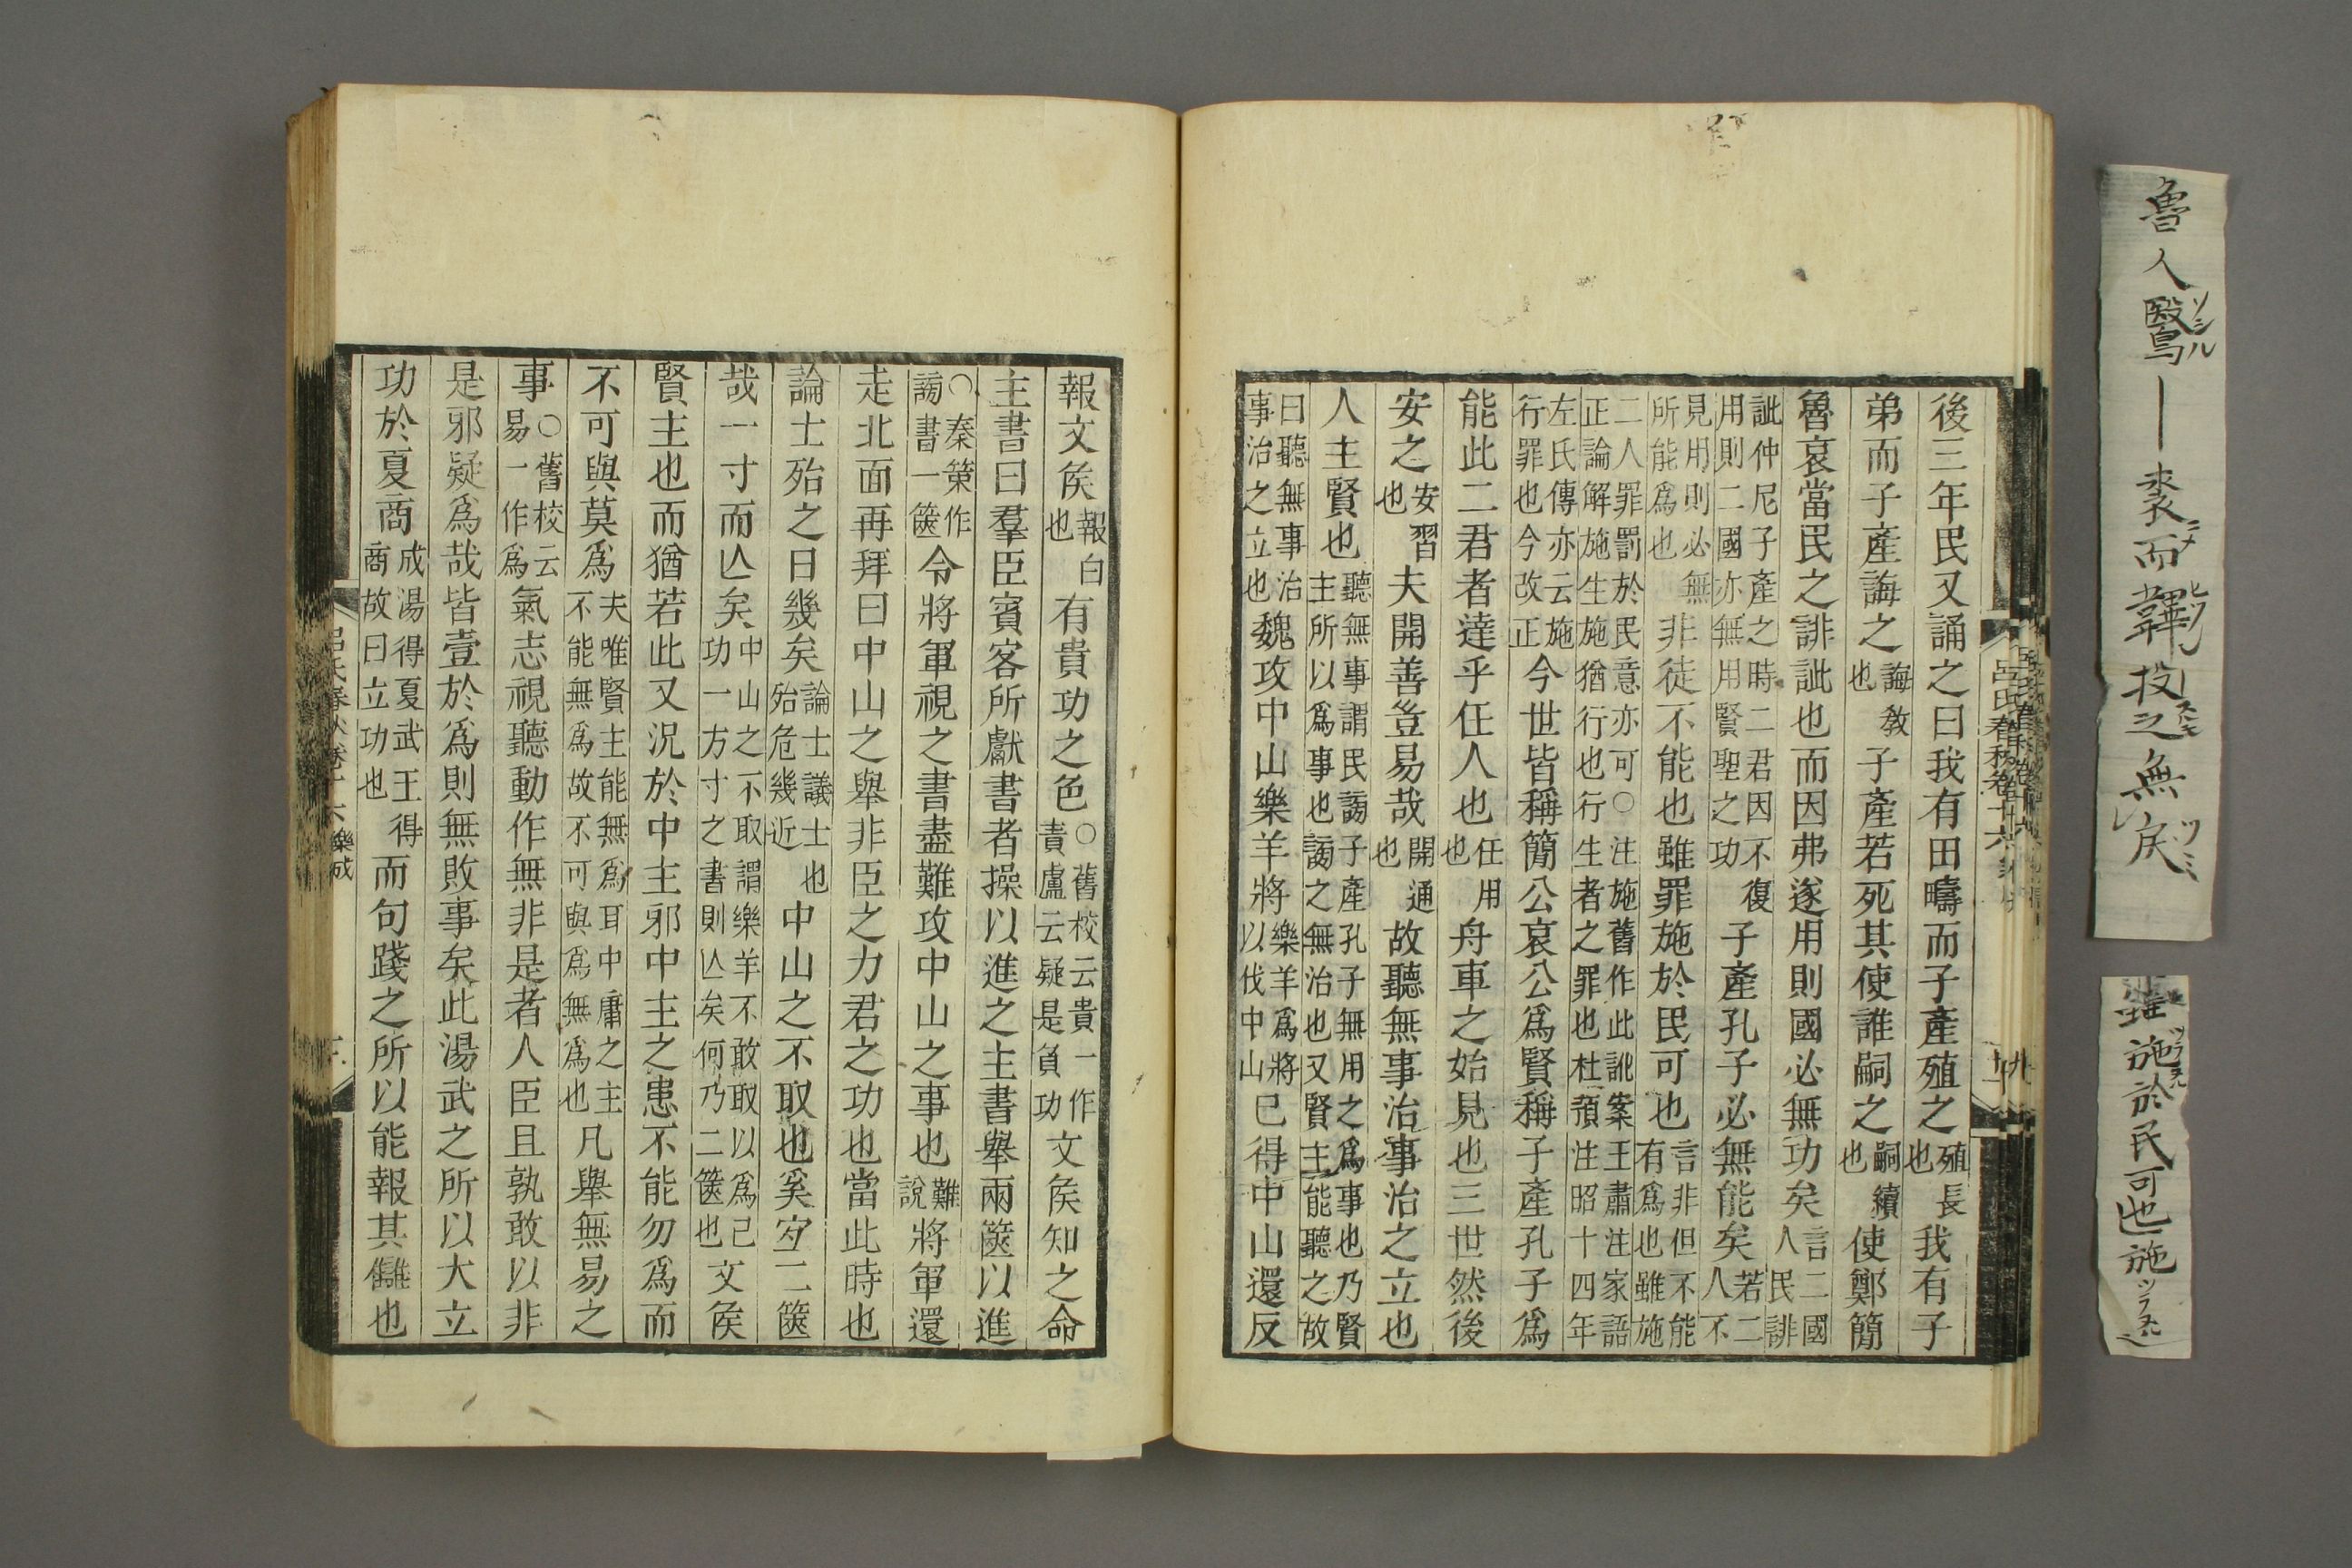 魯人鷖｜裘而鞸投之無戾
雖罪施於民可也施
後三年民又誦之曰我有田疇而子產殖之殖長也我有子
弟而子產誨之誨教也子產若死其使誰嗣之嗣續也使鄭簡
魯哀當民之誹訿也而因弗遂用則國必無功矣言二國人民誹
訿仲尼子產之時二君因不復用則二國亦無用賢聖之功子產孔子必無能矣若二人不
見用則必無所能爲也非徒不能也雖罪施於民可也言非但不能有爲也雖施
二人罪罰於民意亦可○注施舊作此訛案王肅注家語正論解施生施猶行也行生者之罪也杜預注昭十四年
左氏傳亦云施行罪也今改正今世皆稱簡公哀公爲賢稱子產孔子爲
能此二君者達乎任人也任用也舟車之始見也三世然後
安之安習也夫開善豈易哉開通也故聽無事治事治之立也
人主賢也聽無事謂民謗子產孔子無用之爲事也乃賢主所以爲事也謗之無治也又賢主能聽之故
曰聽無事治事治之立也魏攻中山樂羊將樂羊爲將以伐中山已得中山還反
報文矦報白也有貴功之色○舊校云貴一作責盧云疑是負功文矦知之命
主書曰羣臣賓客所獻書者操以進之主書舉兩篋以進
○秦策作謗書一篋令將軍視之書盡難攻中山之事也難說將軍還
走北面再拜曰中山之舉非臣之力君之功也當此時也
論士殆之日幾矣論士議士也殆危幾近中山之不取也奚宐二篋
哉一寸而亾矣中山之不取謂樂羊不敢取以爲己功一方寸之書則亾矣何乃二篋也文矦
賢主也而猶若此又況於中主邪中主之患不能勿爲而
不可與莫爲夫唯賢主能無爲耳中庸之主不能無爲故不可與爲無爲也凡舉無易之
事○舊校云易一作爲氣志視聽動作無非是者人臣且孰敢以非
是邪疑爲哉皆壹於爲則無敗事矣此湯武之所以大立
功於夏商成湯得夏武王得商故曰立功也而句踐之所以能報其讎也
呂氏春秋卷十六 樂成